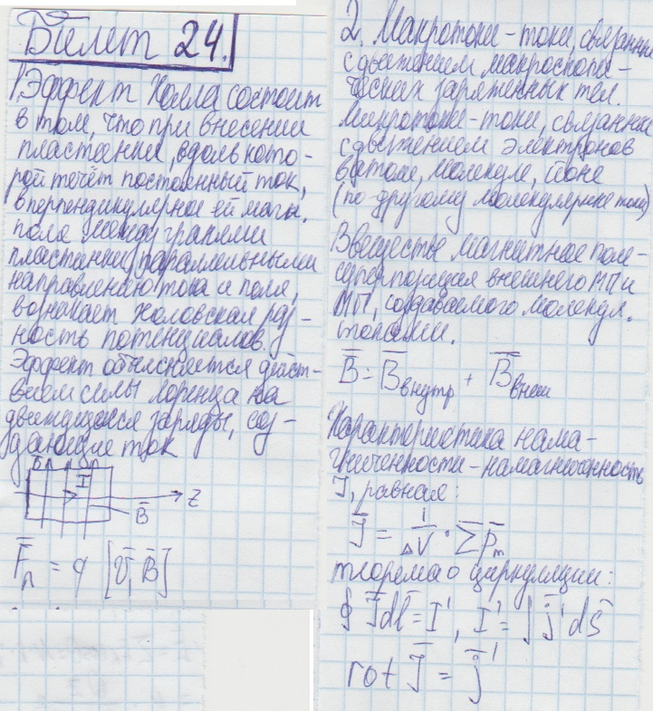 Билет 24.
1 Эффект Холла состоит
в том, что при внесении
пластинки, вдоль кото-
рой течёт постоянный ток,
в перпендикулярное ей магн.
поле между гранями
пластинки, параллельными
направлению тока и поля,
возникает холловская раз-
ность потенциалов.
Эффект объясняется дейст-
вием силы Лоренца на
движущиеся заряды, соз-
дающие ток
I
B̅ Z
F̅л = q [V̅, B̅]
2. Макротоки - токи, связанные
с движением макроскопи-
ческих заряженных тел.
Микротоки - токи, связанные
с движением электронов
в атоме, молекуле, ионе
(по-другому молекулярные токи)
В веществе магнитное поле-
суперпозиция внешнего МП и
МП, создаваемого молекул.
токами.
B̅ = B̅внутр + B̅внеш
Характеристика нама-
гниченности - намагниченность
J, равная:
J̅ = 1/ΔV · ∑p̅m
теорема о циркуляции:
∮ J̅dl̅ = I', I' = ∫ j̅'ds̅
rot J̅ = j̅'